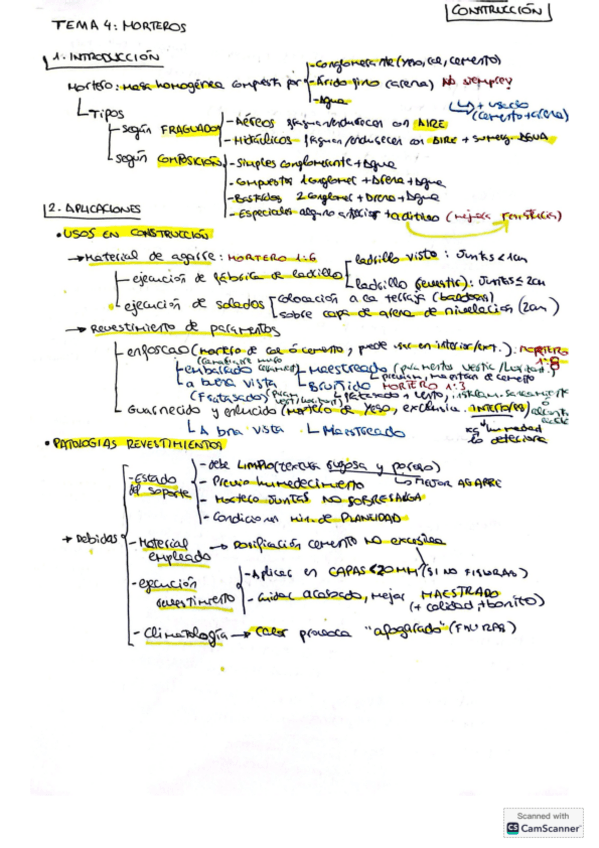 CONSTRUCCIÓN
TEMA 4: MORTEROS
1. INTRODUCCIÓN
Mortero: Masa homogénea compuesta por
- Conglomerante (yeso, cal, cemento)
- Árido fino (arena) No siempre!
- Agua
+ usado
(cemento + arena)
Tipos
según FRAGUADO
- Aéreos fraguan/endurecen con AIRE
- Hidráulicos fraguan/endurecen con AIRE + sumerg. AGUA
según COMPOSICIÓN
- Simples conglomerante + Agua
- Compuestos 1 conglomer + Arena + Agua
- Bastardos 2 conglomer + Arena + Agua
- Especiales alguno anterior + aditivo (mejora resistencia)
2. APLICACIONES
• USOS EN CONSTRUCCIÓN
→ Material de agarre: MORTERO 1:6
- ejecución de fábrica de ladrillo
ladrillo visto: Juntas ≤ 1cm
ladrillo (revestir): Juntas ≤ 2cm
- ejecución de solados
colocación a la terraja (baldosas)
sobre capa de arena de nivelación (2cm)
→ Revestimiento de paramentos
enfoscado (mortero de cal ó cemento, puede use en interior/ext.). MORTERO
1:8
embarrado
Maestreado (paramentos vertic/horizont.)
a buena vista
Bruñido MORTERO 1:3
(Fratasado)
Guarnecido y enlucido (mortero de YESO, exclusiva. INTERIORES)
xq humedad
lo deteriora
A bna vista
Maestreado
• PATOLOGÍAS REVESTIMIENTOS
→ Debidas
- Estado
del soporte
- Debe LIMPIO (textura rugosa y poroso)
- Previo humedecimiento → MEJOR AGARRE
- Mortero JUNTAS NO SOBRESALGA
- Condiciones min. de PLANEIDAD
- Material
empleado
→ Dosificación cemento NO excesiva
- ejecución
revestimiento
- Aplicar en CAPAS < 20 MM (SI NO FISURAS)
- Cuidar acabado, mejor MAESTREADO
(+ calidad, + bonito)
- Climatología → Calor provoca "afogarado" (FISURAS)
Scanned with
CS CamScanner